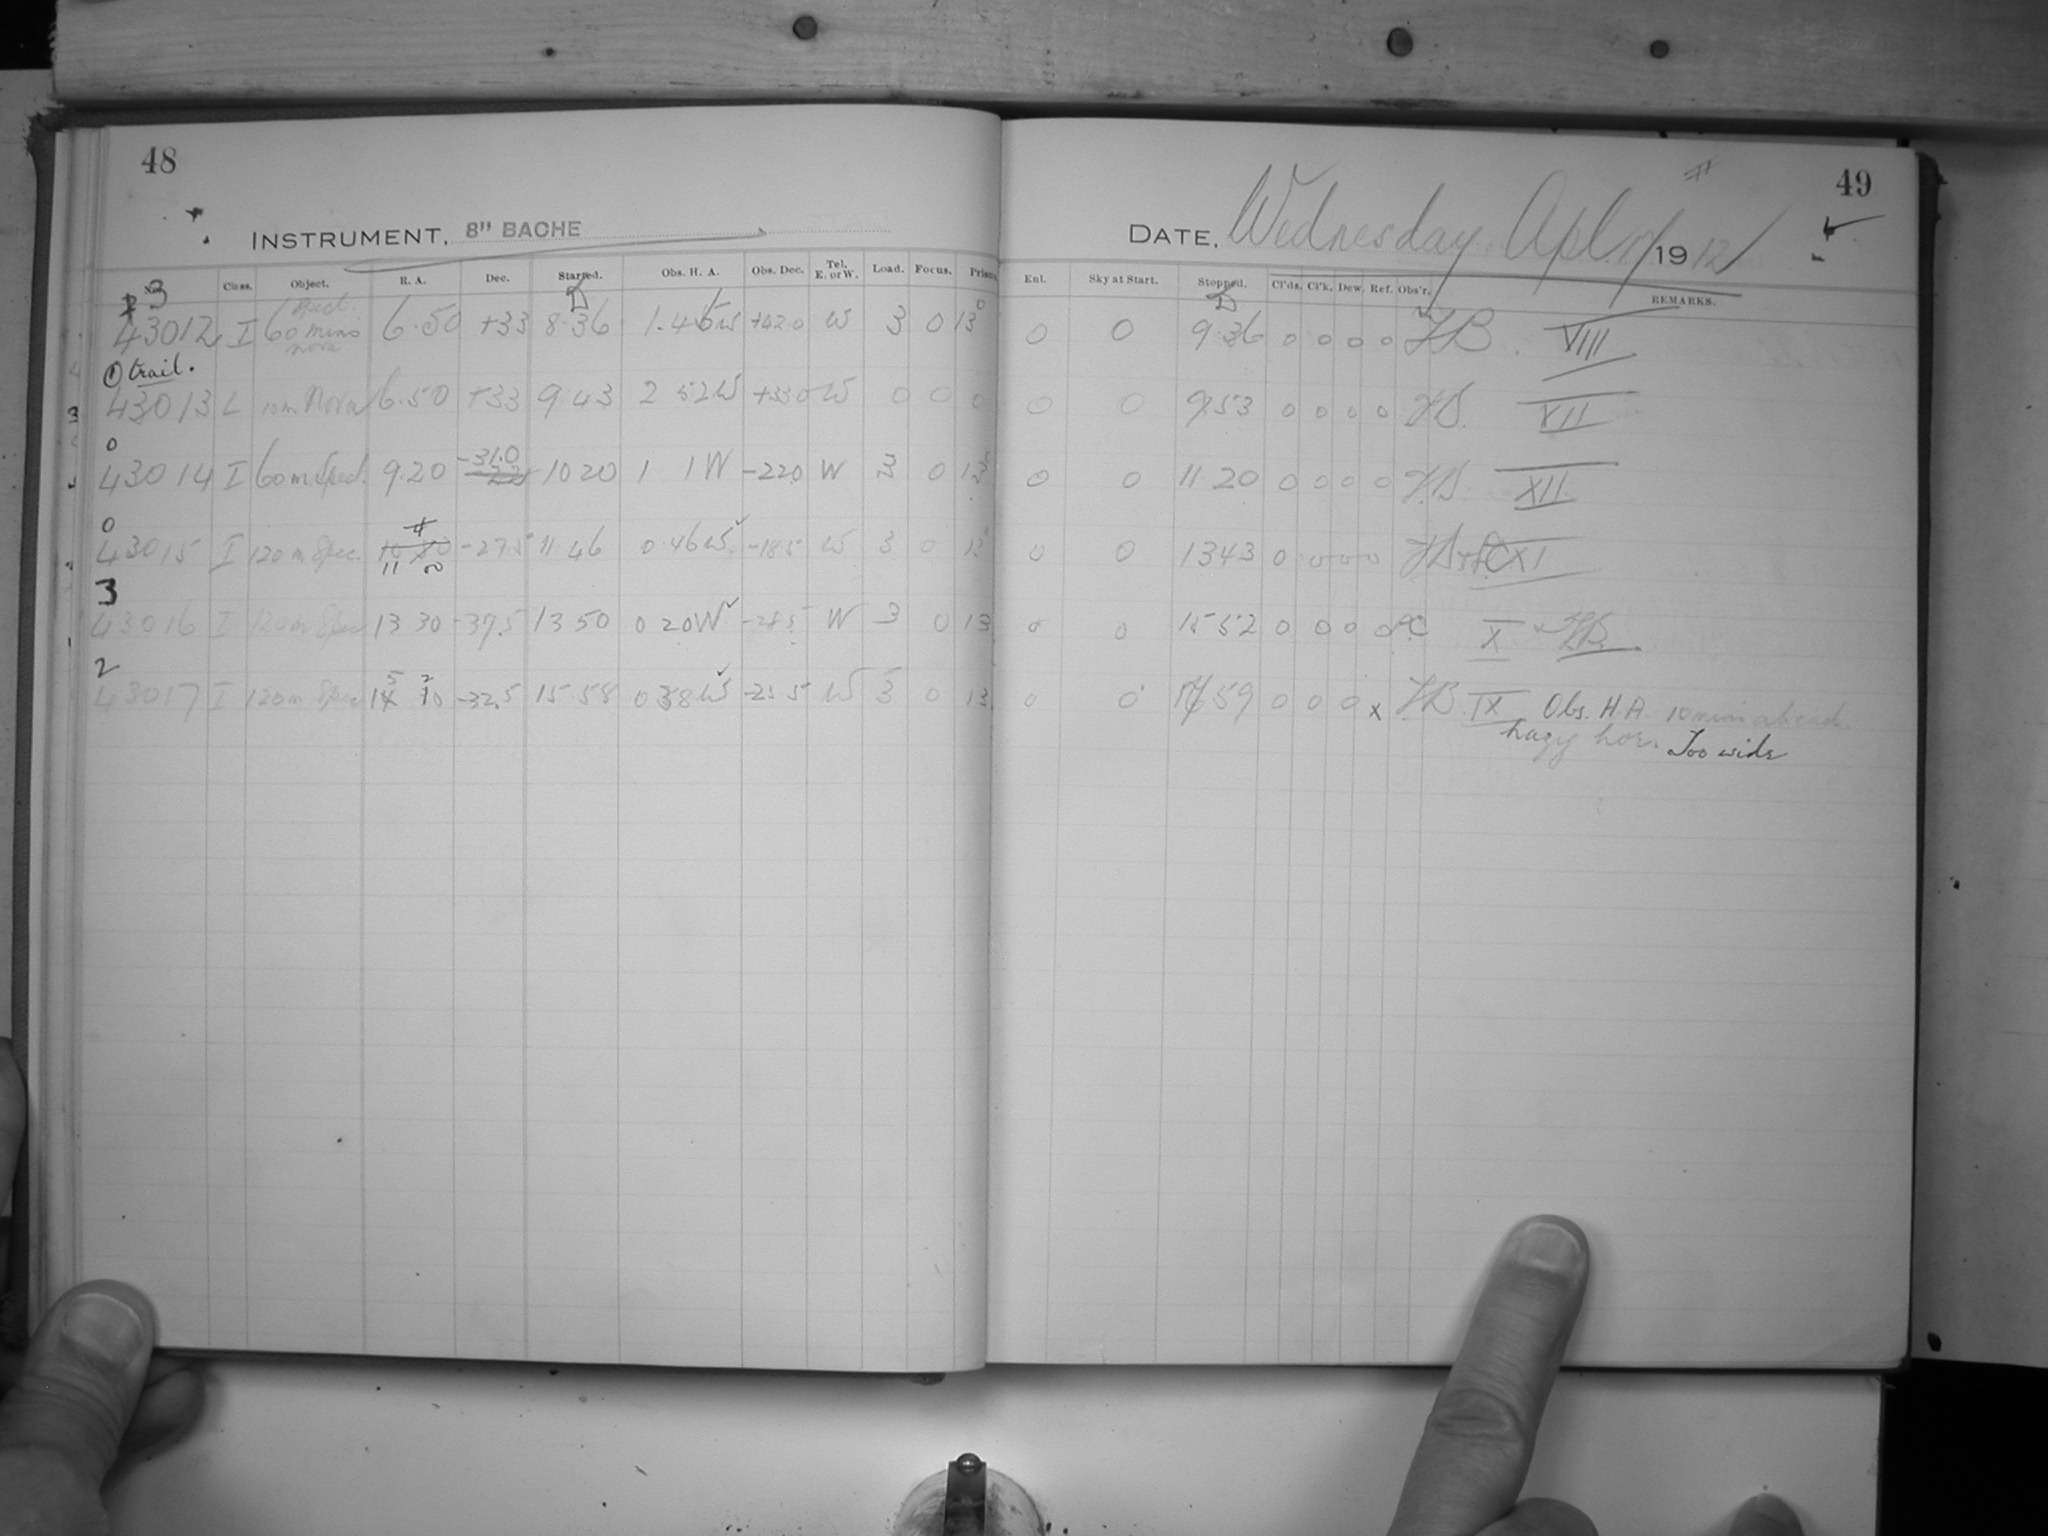 48
INSTRUMENT, 8" BACHE
No. Class. Object. R. A. Dec. Started. Obs. H. A. Obs. Dec. Tel. E. or W. Load. Focus. Prism
3
43012 I 60 mins Spect. Nova 6.50 +33 8.36 1.46W +42.0 W 3 0 13
① trail.
43013 L 10m Nova 6.50 +33 9.43 2 52W +33.0 W 0 0 0
0
43014 I 60m Spec. 9.20 -31.0 10 20 1 1W -22.0 W 3 0 13
0
43015 I 120m Spec. 11 20 -27.5 11 46 0.46W -18.5 W 3 0 13
3
43016 I 120m Spec 13 30 -37.5 13 50 0 20W -28.5 W 3 0 13
2
43017 I 120m Spec 15 20 -32.5 15 58 0 38W -23.5 W 3 0 13
49
DATE, Wednesday Apl. 17 1912
Enl. Sky at Start. Stopped. Cl'ds. Cl'k. Dew. Ref. Obs'r. REMARKS.
0 0 9.36 0 0 0 0 VIII
0 0 9.53 0 0 0 0 VII
0 0 11.20 0 0 0 0 XII
0 0 1343 0 0 0 0 XI
0 0 1552 0 0 0 0 X
0 0 1759 0 0 0 x IX Obs. H.A. 10 min ahead.
hazy hor. Too wide